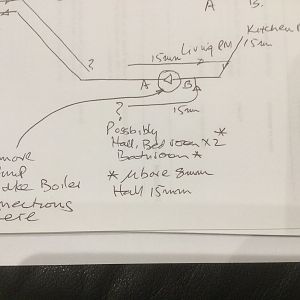 A B.
Kitchen
15mm
Living RM
15mm
?
A B
?
15mm
Possibly
Hall, Bedroom x 2 *
Bathroom *
* Mbore 8mm
Hall 15mm
Boiler
nnections
ere